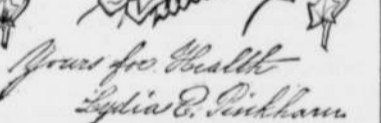 Yours for Health
Lydia E. Pinkham